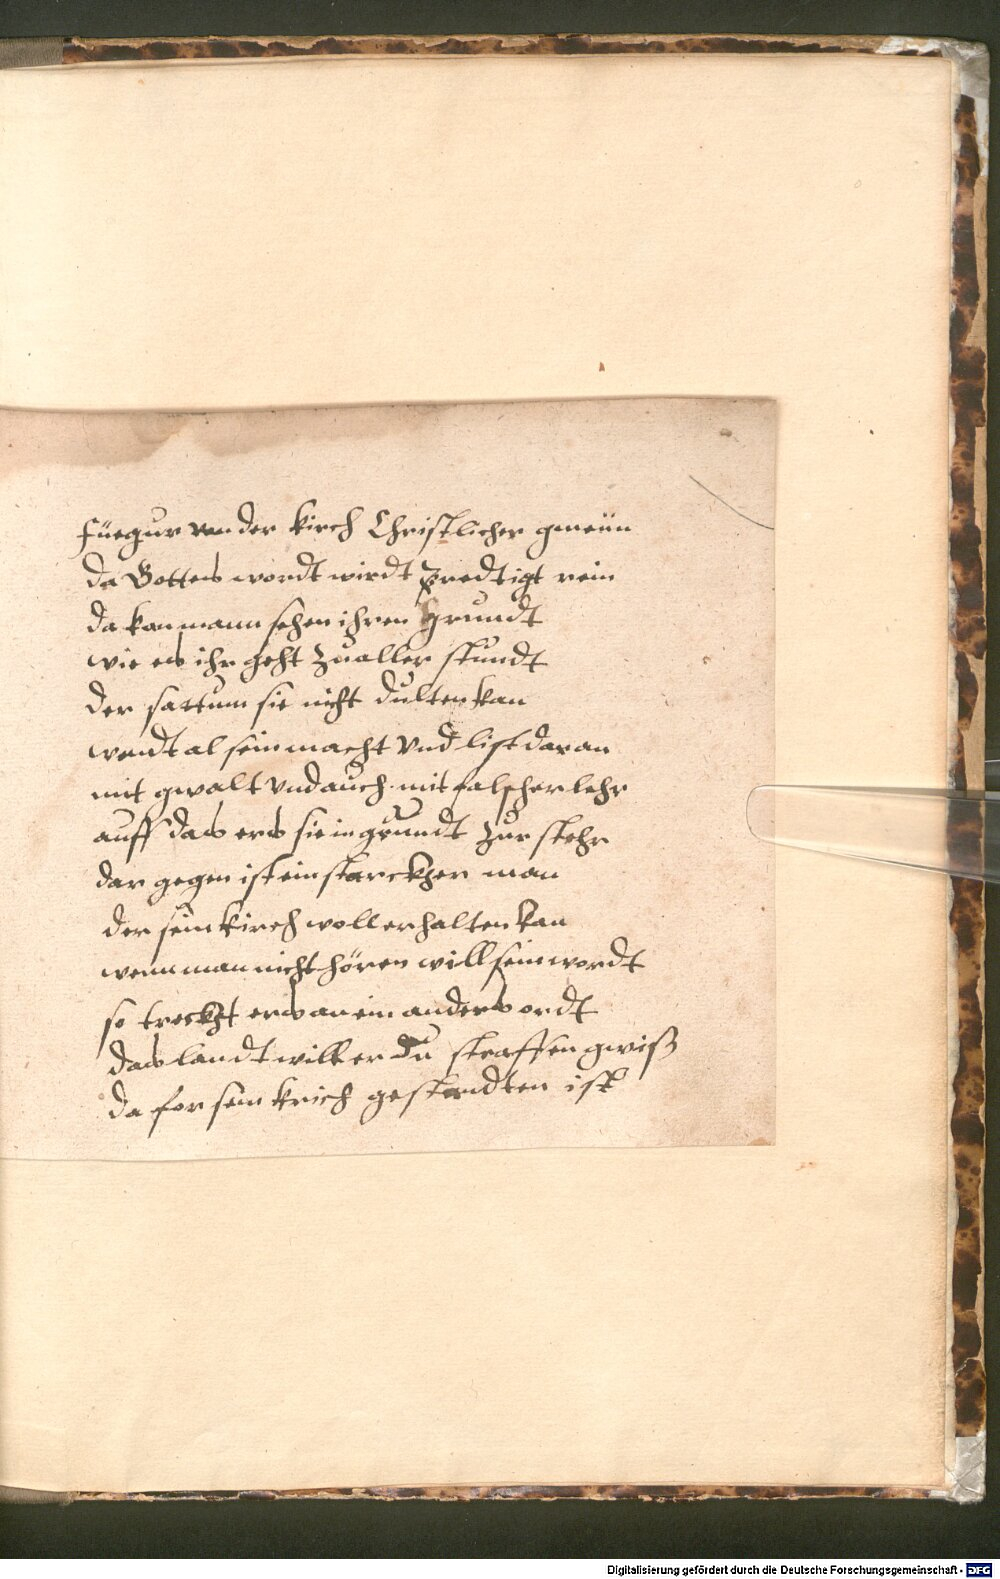 Füegur von der kirch Christlicher gmeün
da Gottes wordt wirdt predtigt rein
da kan mann sehen ihren grundt
wie es ihr geht zu aller stundt
der sattum sie nicht dulten kan
wendt al sein macht vnd list daran
mit gwalt vnd auch mit falscher lehr
auff das ers sie in grundt zur stehr
dar gegen ist ein starckher man
der sein kirch woll erhalten kan
wenn man nicht hören will sein wordt
so treckht ers an ein anders ordt
das landt will er du straffen gwiß
da for sein krich gestandten ist
Digitalisierung gefördert durch die Deutsche Forschungsgemeinschaft - DFG